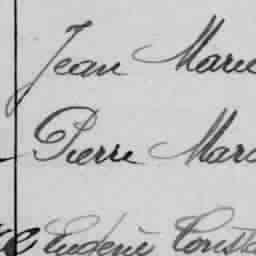 Jean Marie
Pierre Marc
Eugène Const